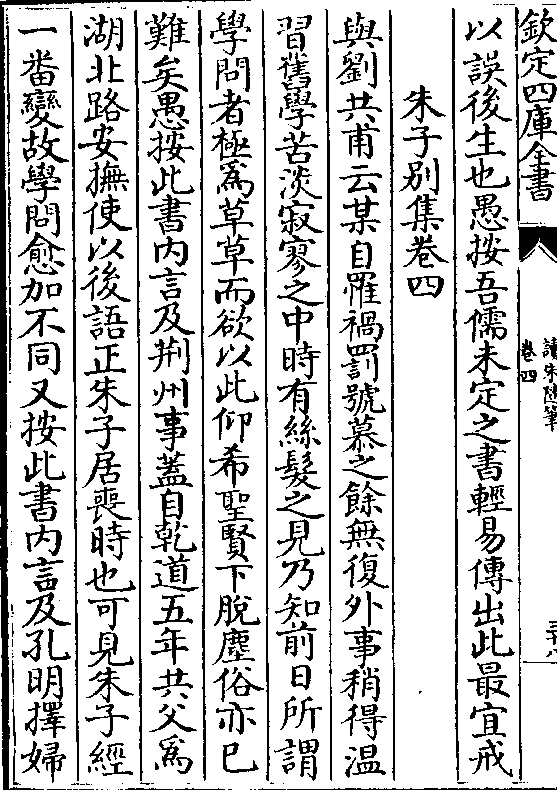 欽定四庫全書
讀朱隨筆
卷四
以誤後生也愚按吾儒未定之書輕易傳出此最宜戒
朱子别集卷四
與劉共甫云某自罹禍罰號慕之餘無復外事稍得温
習舊學苦淡寂寥之中時有絲髮之見乃知前日所謂
學問者極爲草草而欲以此仰希聖賢下脫塵俗亦已
難矣愚按此書内言及荆州事蓋自乾道五年共父爲
湖北路安撫使以後語正朱子居喪時也可見朱子經
一番變故學問愈加不同又按此書内言及孔明擇婦